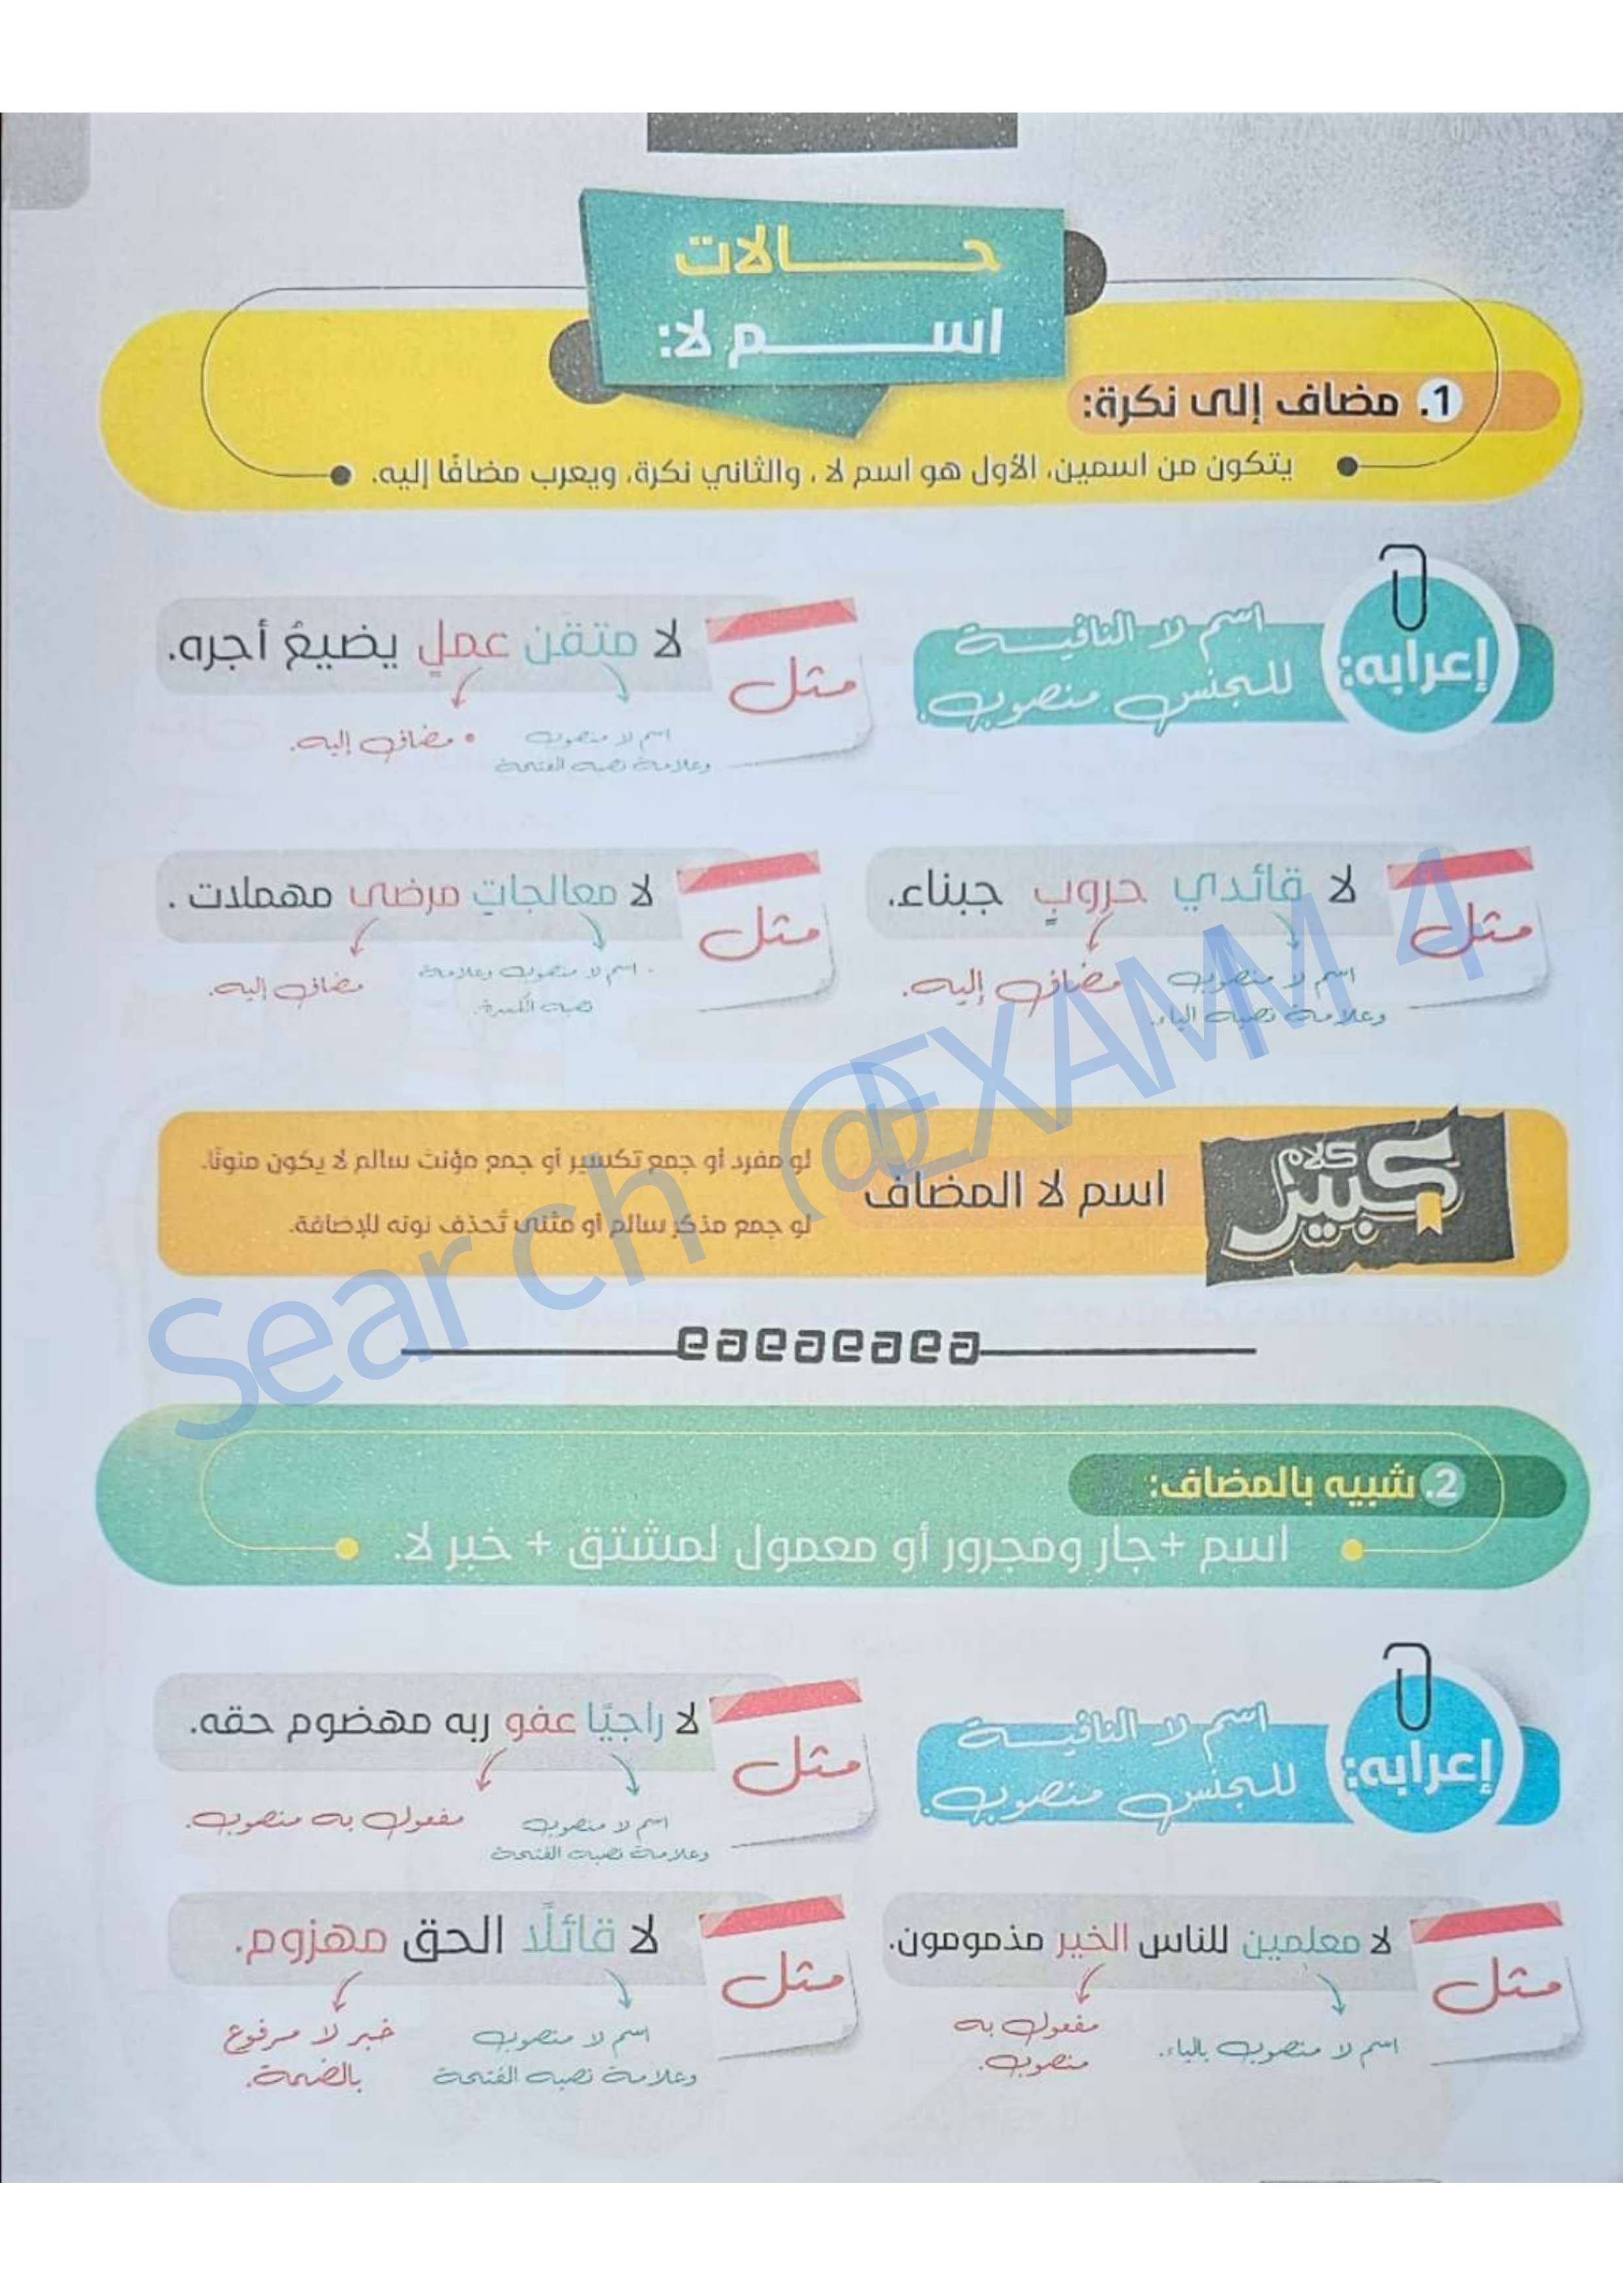 حـــالات
اســـم لا:
1. مضاف إلى نكرة:
يتكون من اسمين، الأول هو اسم لا ، والثاني نكرة، ويعرب مضافًا إليه.
إعرابه:
اسم لا النافيــة
للجنس منصوب.
مثل
لا متقنَ عملٍ يضيعُ أجره.
اسم لا منصوب
وعلامة نصبه الفتحة
مضاف إليه.
مثل
لا قائدي حروبٍ جبناء.
اسم لا منصوب
وعلامة نصبه الياء.
مضاف إليه.
مثل
لا معالجاتِ مرضى مهملات .
اسم لا منصوب وعلامة
نصبه الكسرة.
مضاف إليه.
كلام
كبير
اسم لا المضاف
لو مفرد أو جمع تكسير أو جمع مؤنث سالم لا يكون منونًا.
لو جمع مذكر سالم أو مثنى تُحذف نونه للإضافة.
2. شبيه بالمضاف:
اسم +جار ومجرور أو معمول لمشتق + خبر لا.
إعرابه:
اسم لا النافيــة
للجنس منصوب.
مثل
لا راجيًا عفو ربه مهضوم حقه.
اسم لا منصوب
وعلامة نصبه الفتحة
مفعول به منصوب.
مثل
لا معلمين للناس الخير مذمومون.
اسم لا منصوب بالياء.
مفعول به
منصوب.
مثل
لا قائلًا الحق مهزوم.
اسم لا منصوب
وعلامة نصبه الفتحة
خبر لا مرفوع
بالضمة.
Search @EXAMM 4